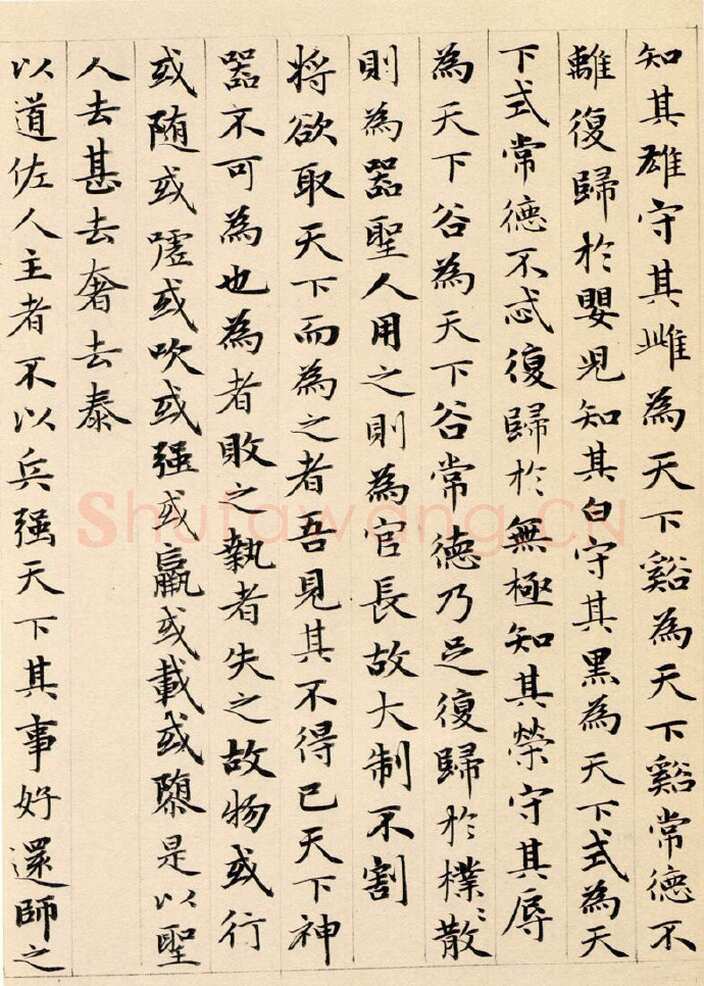 知其雄守其雌為天下谿為天下谿常德不
離復歸於嬰児知其白守其黒為天下式為天
下式常德不忒復歸於無極知其榮守其辱
為天下谷為天下谷常德乃足復歸於樸〻散
則為器聖人用之則為官長故大制不割
将欲取天下而為之者吾見其不得已天下神
器不可為也為者敗之執者失之故物或行
或随或嘘或吹或强或羸或載或隳是以聖
人去甚去奢去泰
以道佐人主者不以兵强天下其事好還師之
Shufawang.CN